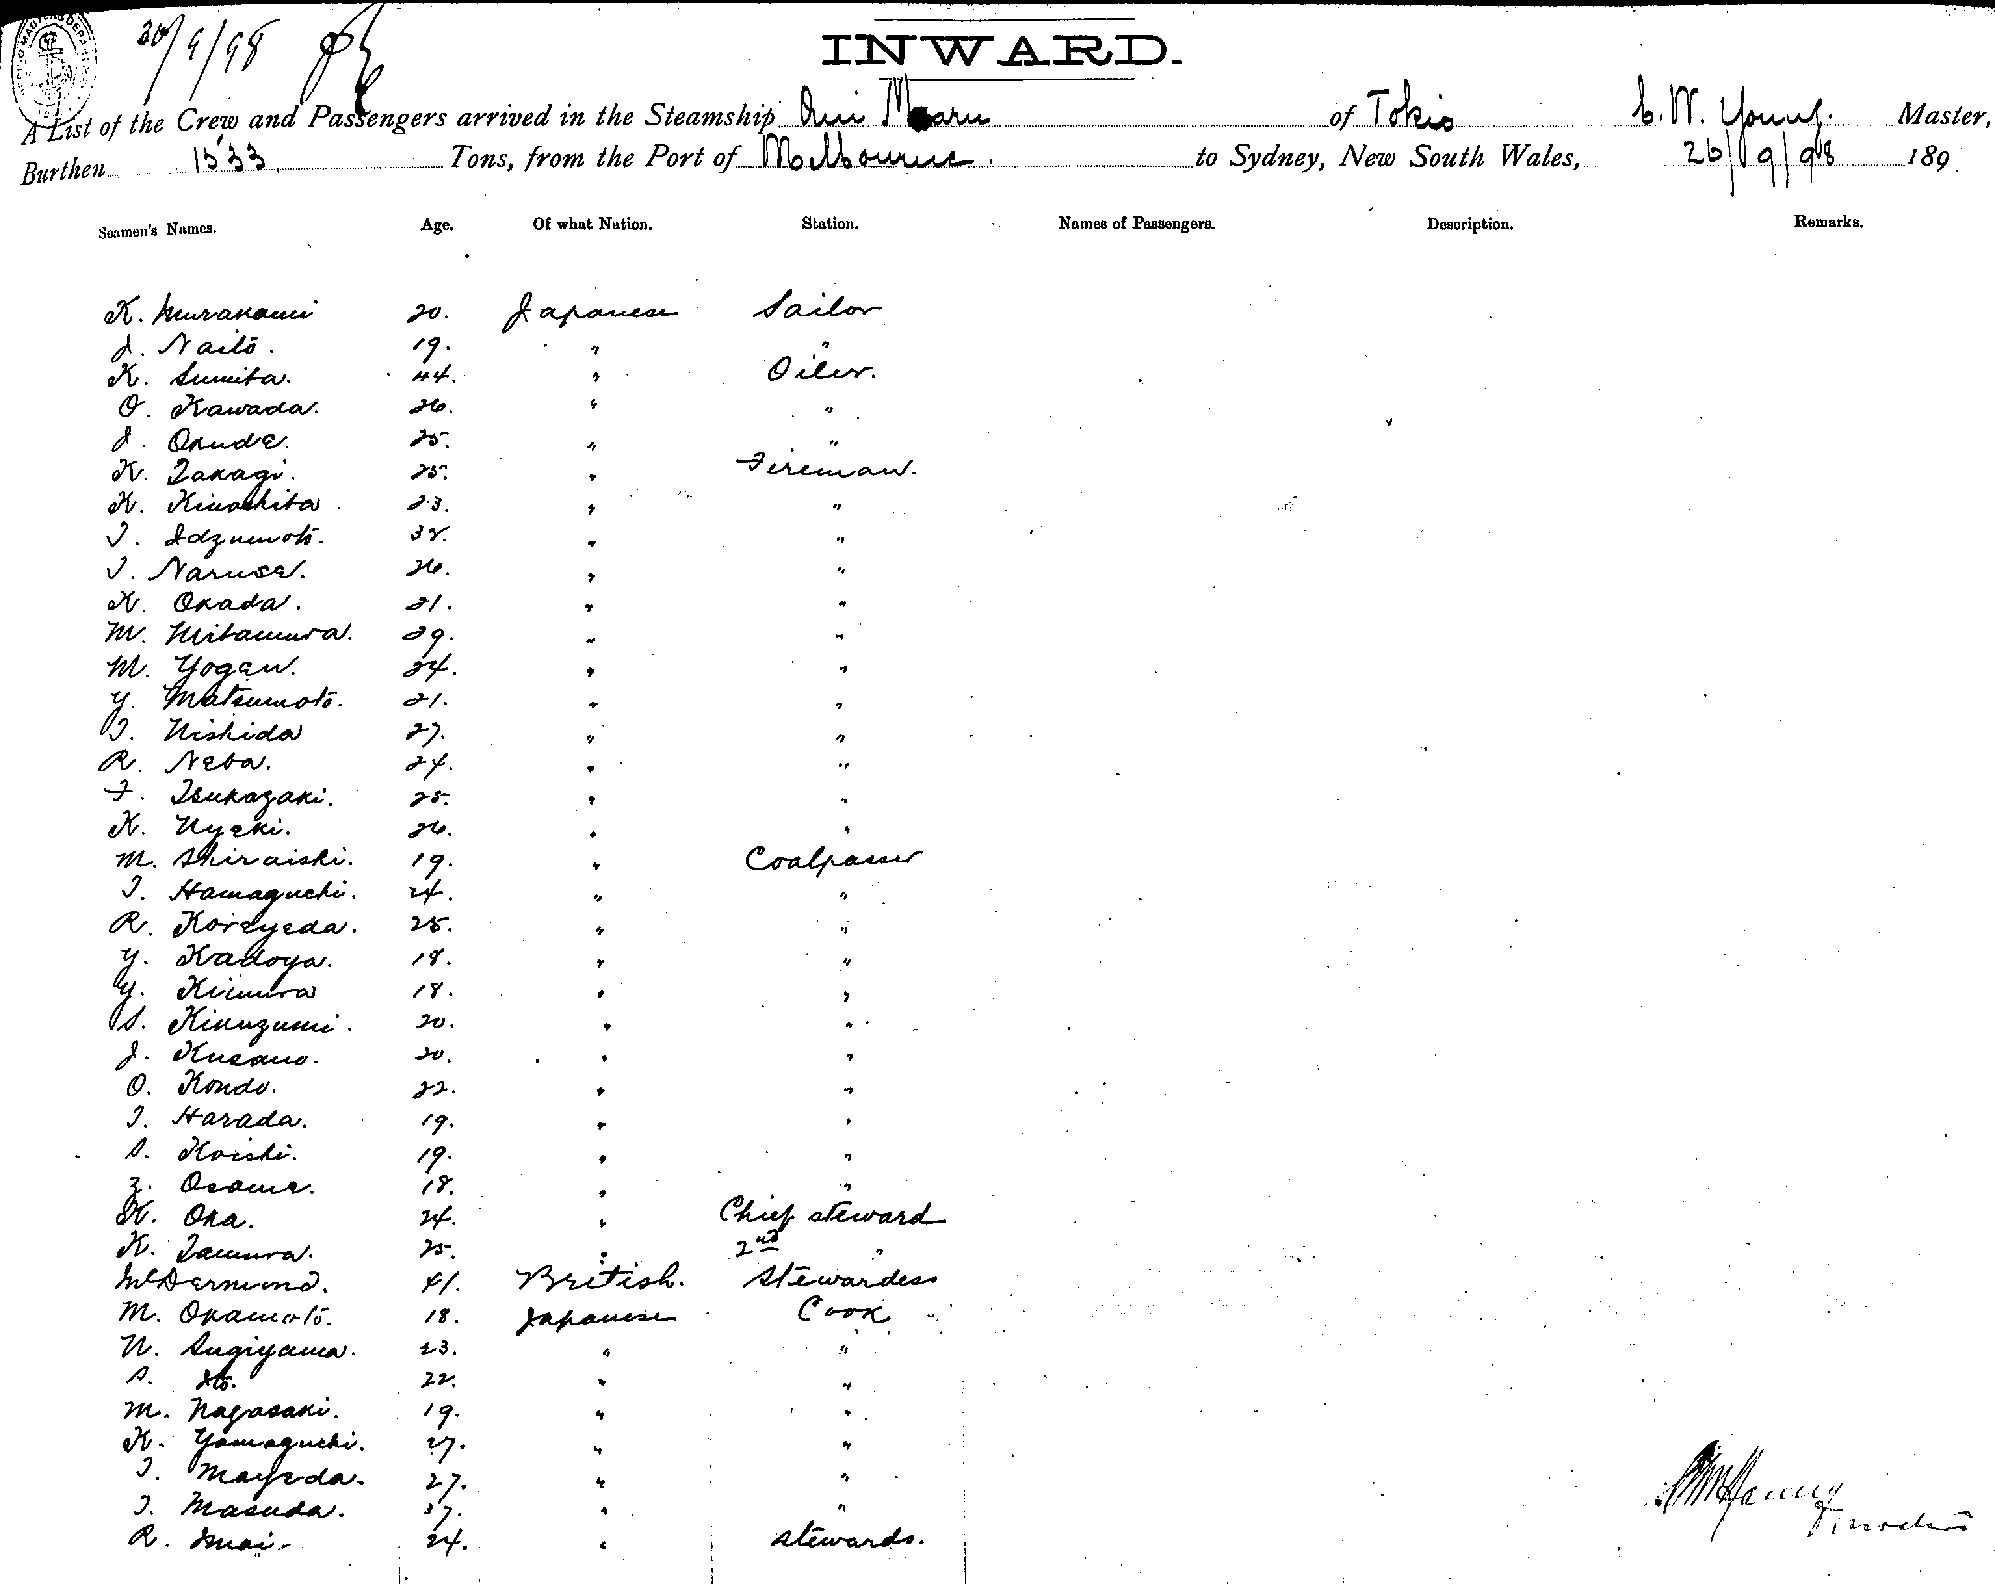 26/9/98
INWARD.
A List of the Crew and Passengers arrived in the Steamship Omi Maru of Tokio C. W. Young. Master,
Burthen 1533 Tons, from the Port of Melbourne. to Sydney, New South Wales, 26/9/98 189
Seamen's Names. Age. Of what Nation. Station. Names of Passengers. Description. Remarks.
K. Murakami 20. Japanese Sailor
J. Naito. 19. " "
K. Sumita. 44. " Oiler.
O. Kawada. 26. " "
J. Okude. 25. " "
K. Takagi. 25. " Fireman.
K. Kinoshita. 23. " "
T. Idzumoto. 32. " "
T. Naruse. 26. " "
K. Okada. 21. " "
M. Mitamura. 29. " "
M. Yogen. 24. " "
Y. Matsumoto. 21. " "
T. Nishida 27. " "
R. Neba. 24. " "
F. Tsukazaki. 25. " "
K. Uyeki. 26. " "
M. Shiraishi. 19. " Coalpasser
T. Hamaguchi. 24. " "
R. Koreyeda. 25. " "
Y. Kadoya. 18. " "
Y. Kimura 18. " "
S. Kikuzumi. 20. " "
J. Kusano. 20. " "
O. Kondo. 22. " "
T. Harada. 19. " "
S. Koishi. 19. " "
Z. Osame. 18. " "
K. Oka. 24. " Chief steward
K. Tamura. 25. " 2nd "
McDermond. 41. British. Stewardess
M. Okamoto. 18. Japanese Cook
N. Sugiyama. 23. " "
S. Ito. 22. " "
M. Nagasaki. 19. " "
K. Yamaguchi. 27. " "
T. Mayeda. 27. " "
T. Masuda. 37. " "
R. Imai. 24. " stewards.